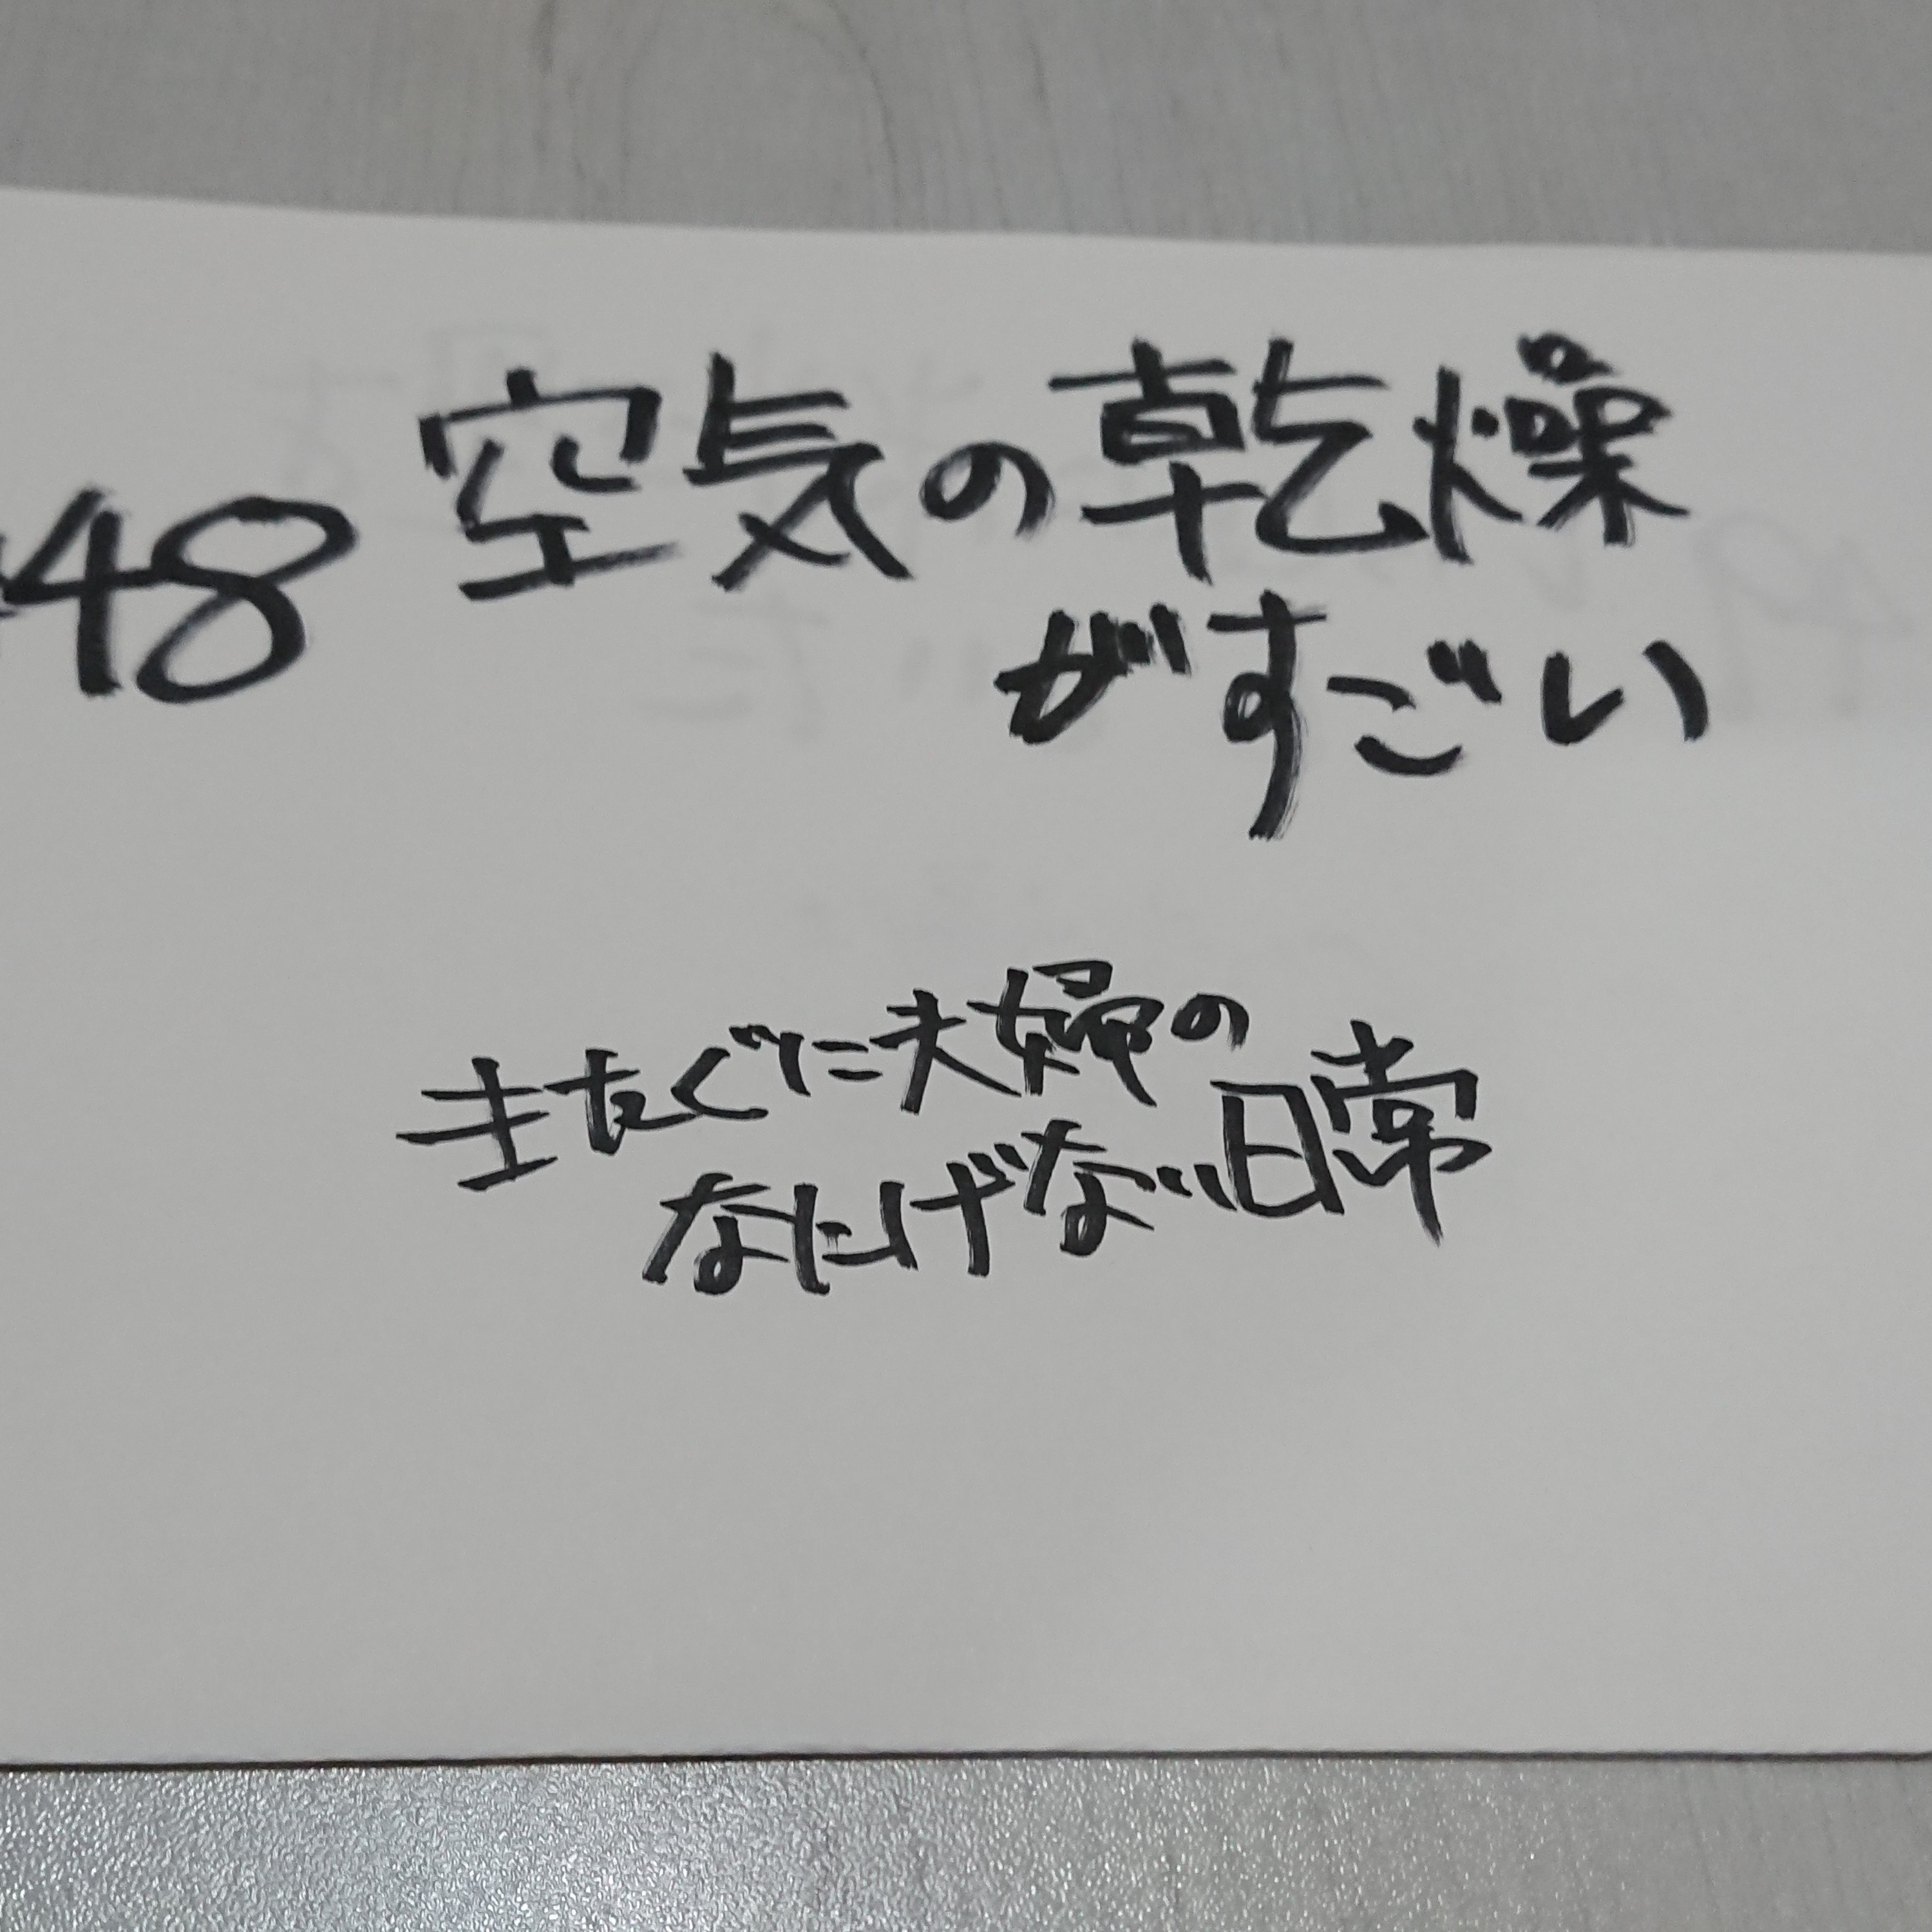 48 空気の乾燥
がすごい
きたぐに夫婦の
なにげない日常